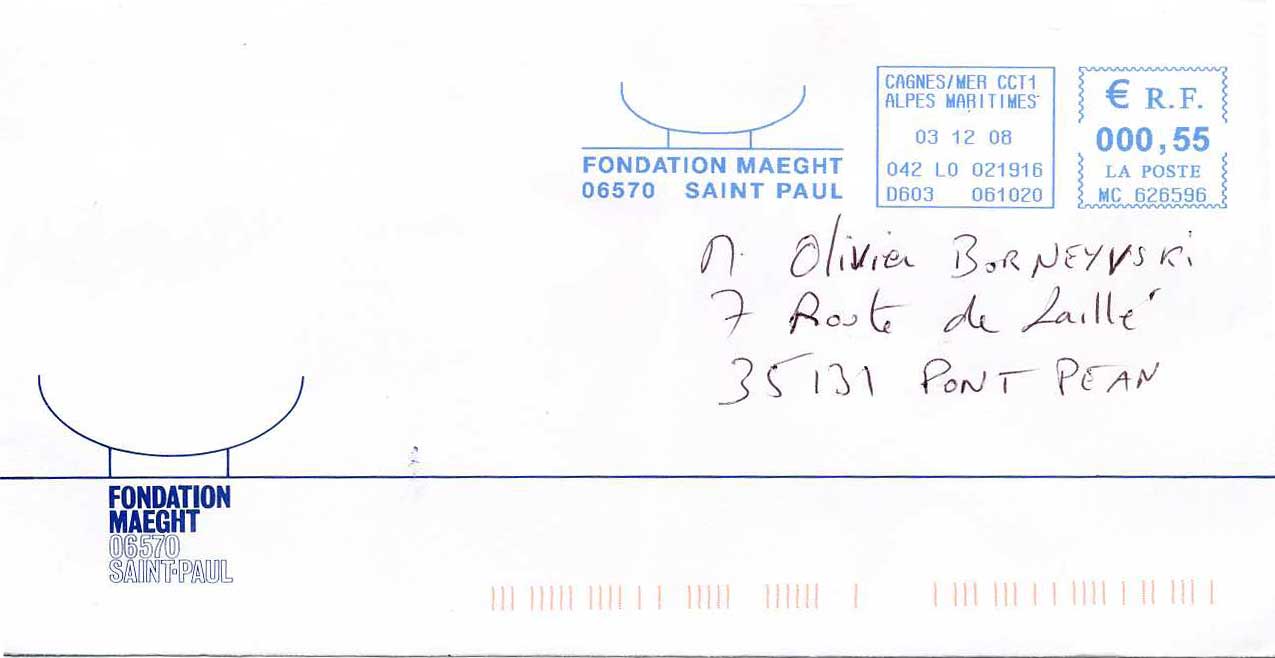 FONDATION MAEGHT
06570 SAINT PAUL
CAGNES/MER CCT1
ALPES MARITIMES
03 12 08
042 L0 021916
D603 061020
€ R.F.
000,55
LA POSTE
MC 626596
M. Olivier BORNEYVSKi
7 Route de Laillé
35131 PONT PEAN
FONDATION
MAEGHT
06570
SAINT-PAUL